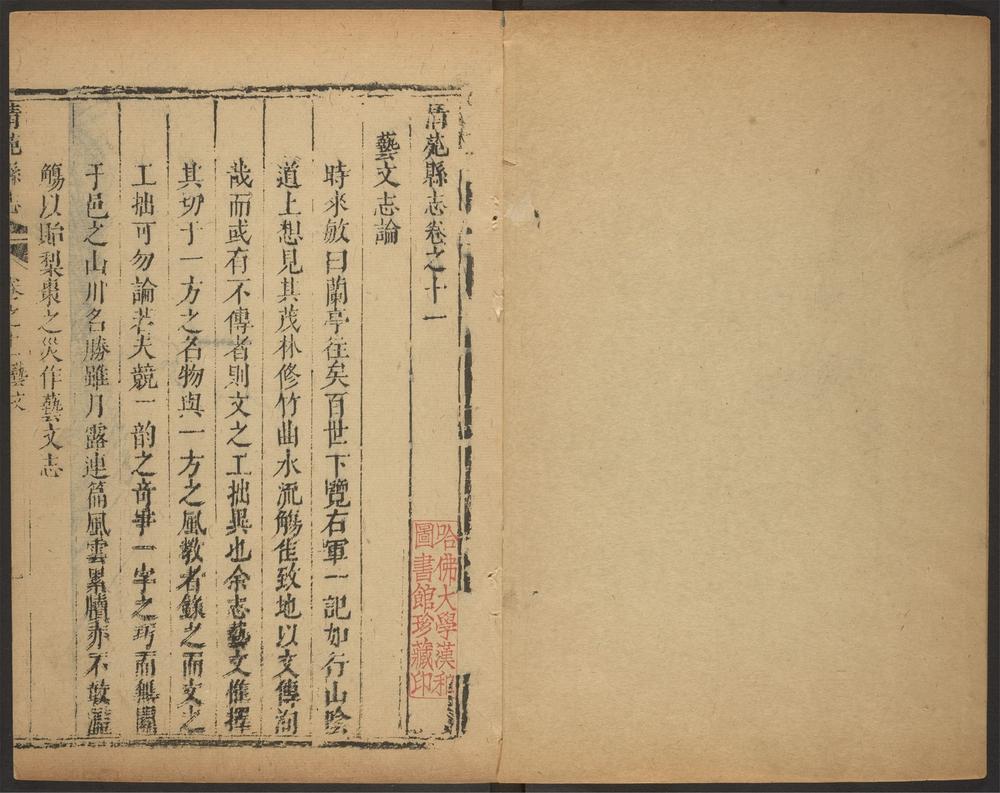 清苑縣志卷之十一
藝文志論
時來敏曰蘭亭往矣百世下覽右軍一記如行山陰
道上想見其茂林修竹曲水流觴佳致地以文傳洵
哉而或有不傳者則文之工拙異也余志藝文惟擇
其切于一方之名物與一方之風教者錄之而文之
工拙可勿論若夫競一韵之奇爭一字之巧而無關
于邑之山川名勝雖月露連篇風雲累牘亦不敢濫
觴以貽梨棗之災作藝文志
清苑縣志 卷之十一藝文 一
哈佛大學漢和
圖書館珍藏印